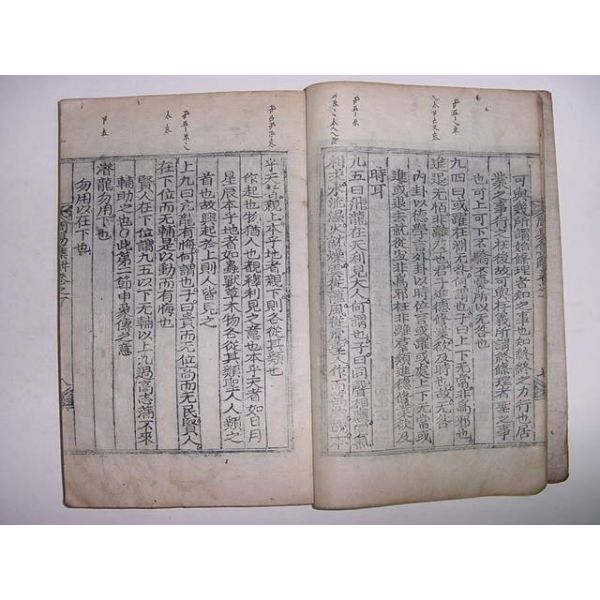 可與幾所謂始條理者知之事也知終終之力行也居
業之事行之在後故可與存義所謂終條理者聖之事
也可上可下不驕不憂所以无咎也
九四曰或躍在淵无咎何謂也子曰上下无常非爲邪也
進退无恒非離群也君子進德修業欲及時也故无咎
內卦以德學言外卦以時位言或躍或處上下无常或
進或退去就從宜非爲邪枉非離群類進德修業欲及
時耳
九五曰飛龍在天利見大人何謂也子曰同聲相應同氣
相求水流濕火就燥雲從龍風從虎聖人作而萬物覩
乎天者親上本乎地者親下則各從其類也
作起也物猶人也覩釋利見之意也本乎天者如日月
星辰本乎地者如蟲獸草木物各從其類聖人人類之
首也故興起於上則人皆見之
上九曰亢龍有悔何謂也子曰貴而无位高而无民賢人
在下位而无輔是以動而有悔也
賢人在下位謂九五以下无輔以上九過高志滿不來
輔助之也○此第二節申象傳之意
潛龍勿用下也
勿用以在下也